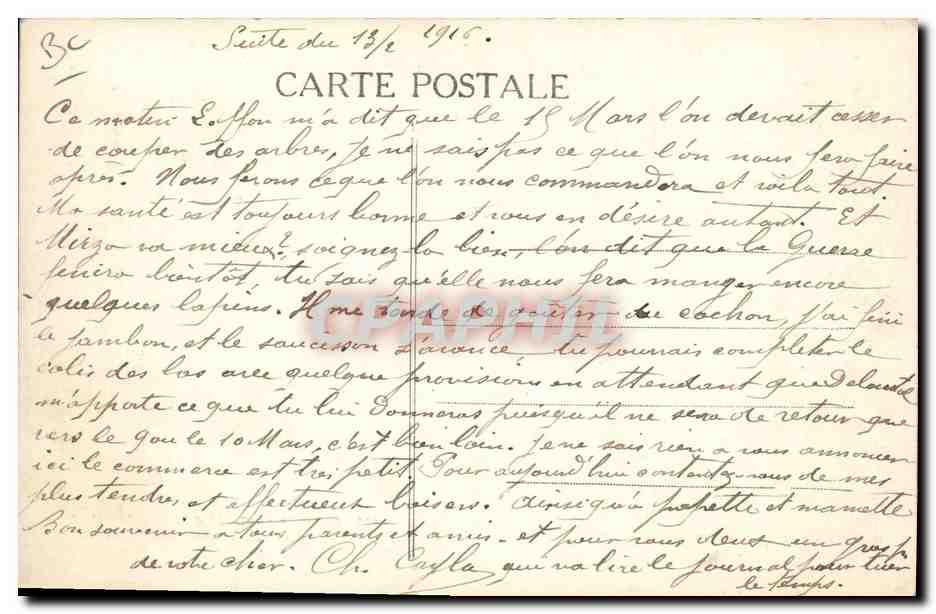 Bc
Suite du 13/2 1916.
CARTE POSTALE
Ce matin Laffon m'a dit que le 15 Mars l'on devait cesser
de couper des arbres, je ne sais pas ce que l'on nous fera faire
après. Nous ferons ce que l'on nous commandera et voila tout
Ma santé est toujours bonne et vous en désire autant. Et
Mirza va mieux? soignez la bien, l'on dit que la Guerre
finira bientôt tu sais qu'elle nous fera manger encore
quelques lapins. Il me tarde de gouter du cochon, j'ai fini
le jambon, et le saucisson s'avance, tu pourrais completer le
colis des bas avec quelque provisions en attendant que
m'apporte ce que tu lui donneras puisqu'il ne sera de retour que
vers le 9 ou le 10 Mars, c'est bien loin. Je ne sais rien a vous annoncer
ici le commerce est tres petit. Pour aujourd'hui contentez-vous de mes
plus tendres et affectueux baisers. ainsi qu'a papette et mamette
Bon souvenir a tous parents et amis - et pour vous deux un gros
de votre cher. Ch. Cayla qui va lire le journal pour tuer
le temps.
CPAPHIL